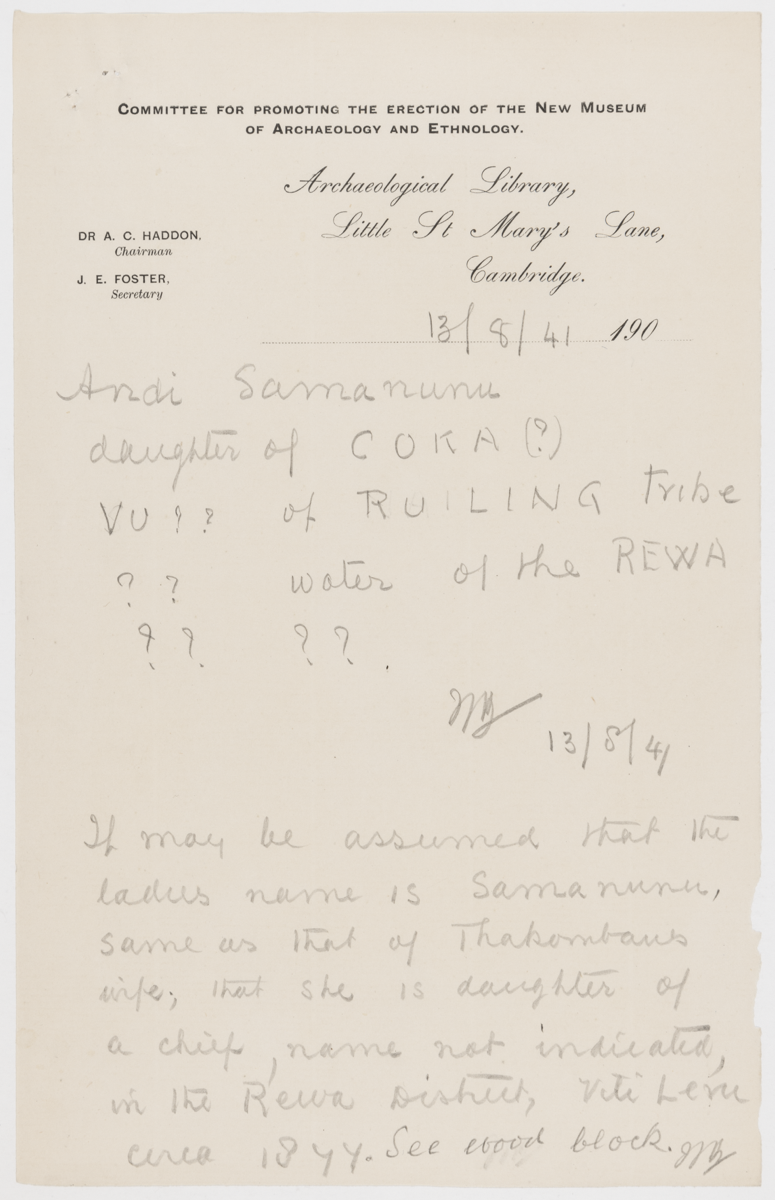 COMMITTEE FOR PROMOTING THE ERECTION OF THE NEW MUSEUM
OF ARCHAEOLOGY AND ETHNOLOGY.
Archaeological Library,
Little St Mary's Lane,
Cambridge.
DR A. C. HADDON,
Chairman
J. E. FOSTER,
Secretary
13/8/41 190
Andi Samanunu
daughter of COKA (?)
VU ? ? of RUILING tribe
? ? water of the REWA
? ? ? ? .
13/8/41
It may be assumed that the
ladies name is Samanunu,
same as that of Thakombaus
wife; that she is daughter of
a chief, name not indicated,
in the Rewa District, Viti Levu
circa 1877. See wood block.